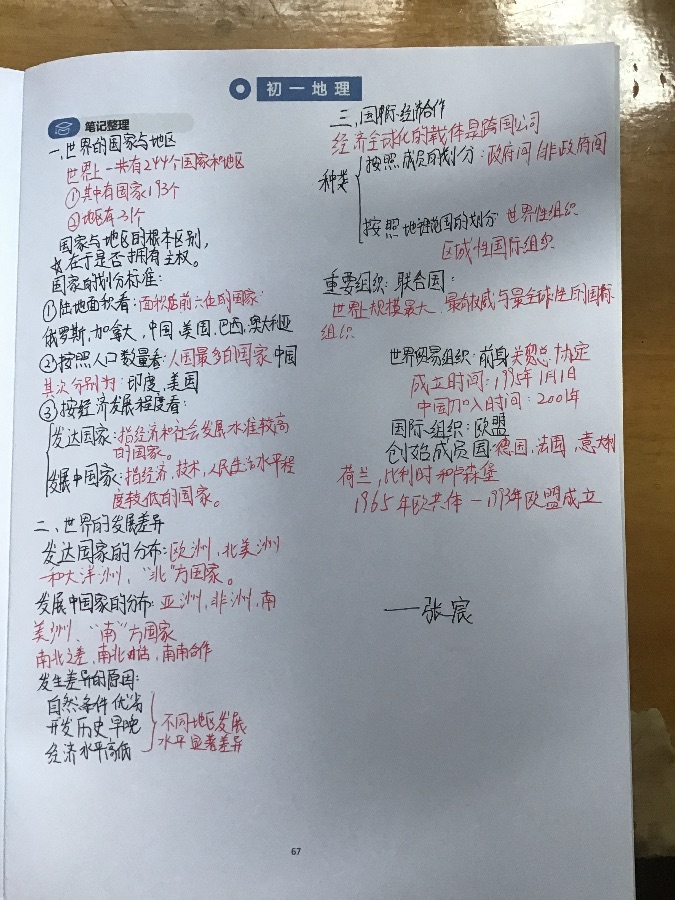 初一地理
笔记整理
一、世界的国家与地区
世界上一共有244个国家和地区
①其中有国家193个
②地区有31个
国家与地区的根本区别,
在于是否拥有主权。
国家的划分标准:
①陆地面积看:面积居前六位的国家
俄罗斯,加拿大,中国,美国,巴西,澳大利亚
②按照人口数量看:人国最多的国家 中国
其次分别为:印度、美国
③按经济发展程度看:
发达国家:指经济和社会发展水准较高
的国家。
发展中国家:指经济,技术,人民生活水平程
度较低的国家。
二、世界的发展差异
发达国家的分布:欧洲、北美洲
和大洋洲、“北”方国家。
发展中国家的分布:亚洲,非洲,南
美洲、“南”方国家
南北之差,南北对话,南南合作
发生差异的原因:
自然条件优劣
开发历史早晚
经济水平高低
不同地区发展
水平显著差异
三、国际经济合作
经济全球化的载体是跨国公司
种类
按照成员的划分:政府间/非政府间
按照地理范围的划分 世界性组织
区域性国际组织
重要组织:联合国:
世界上规模最大、最有权威与最全球性的国际
组织
世界贸易组织:前身 关贸总协定
成立时间:1995年1月1日
中国加入时间:2001年
国际组织:欧盟
创始成员国:德国,法国,意大利
荷兰,比利时和卢森堡
1965年欧共体-1993年欧盟成立
——张宸
67